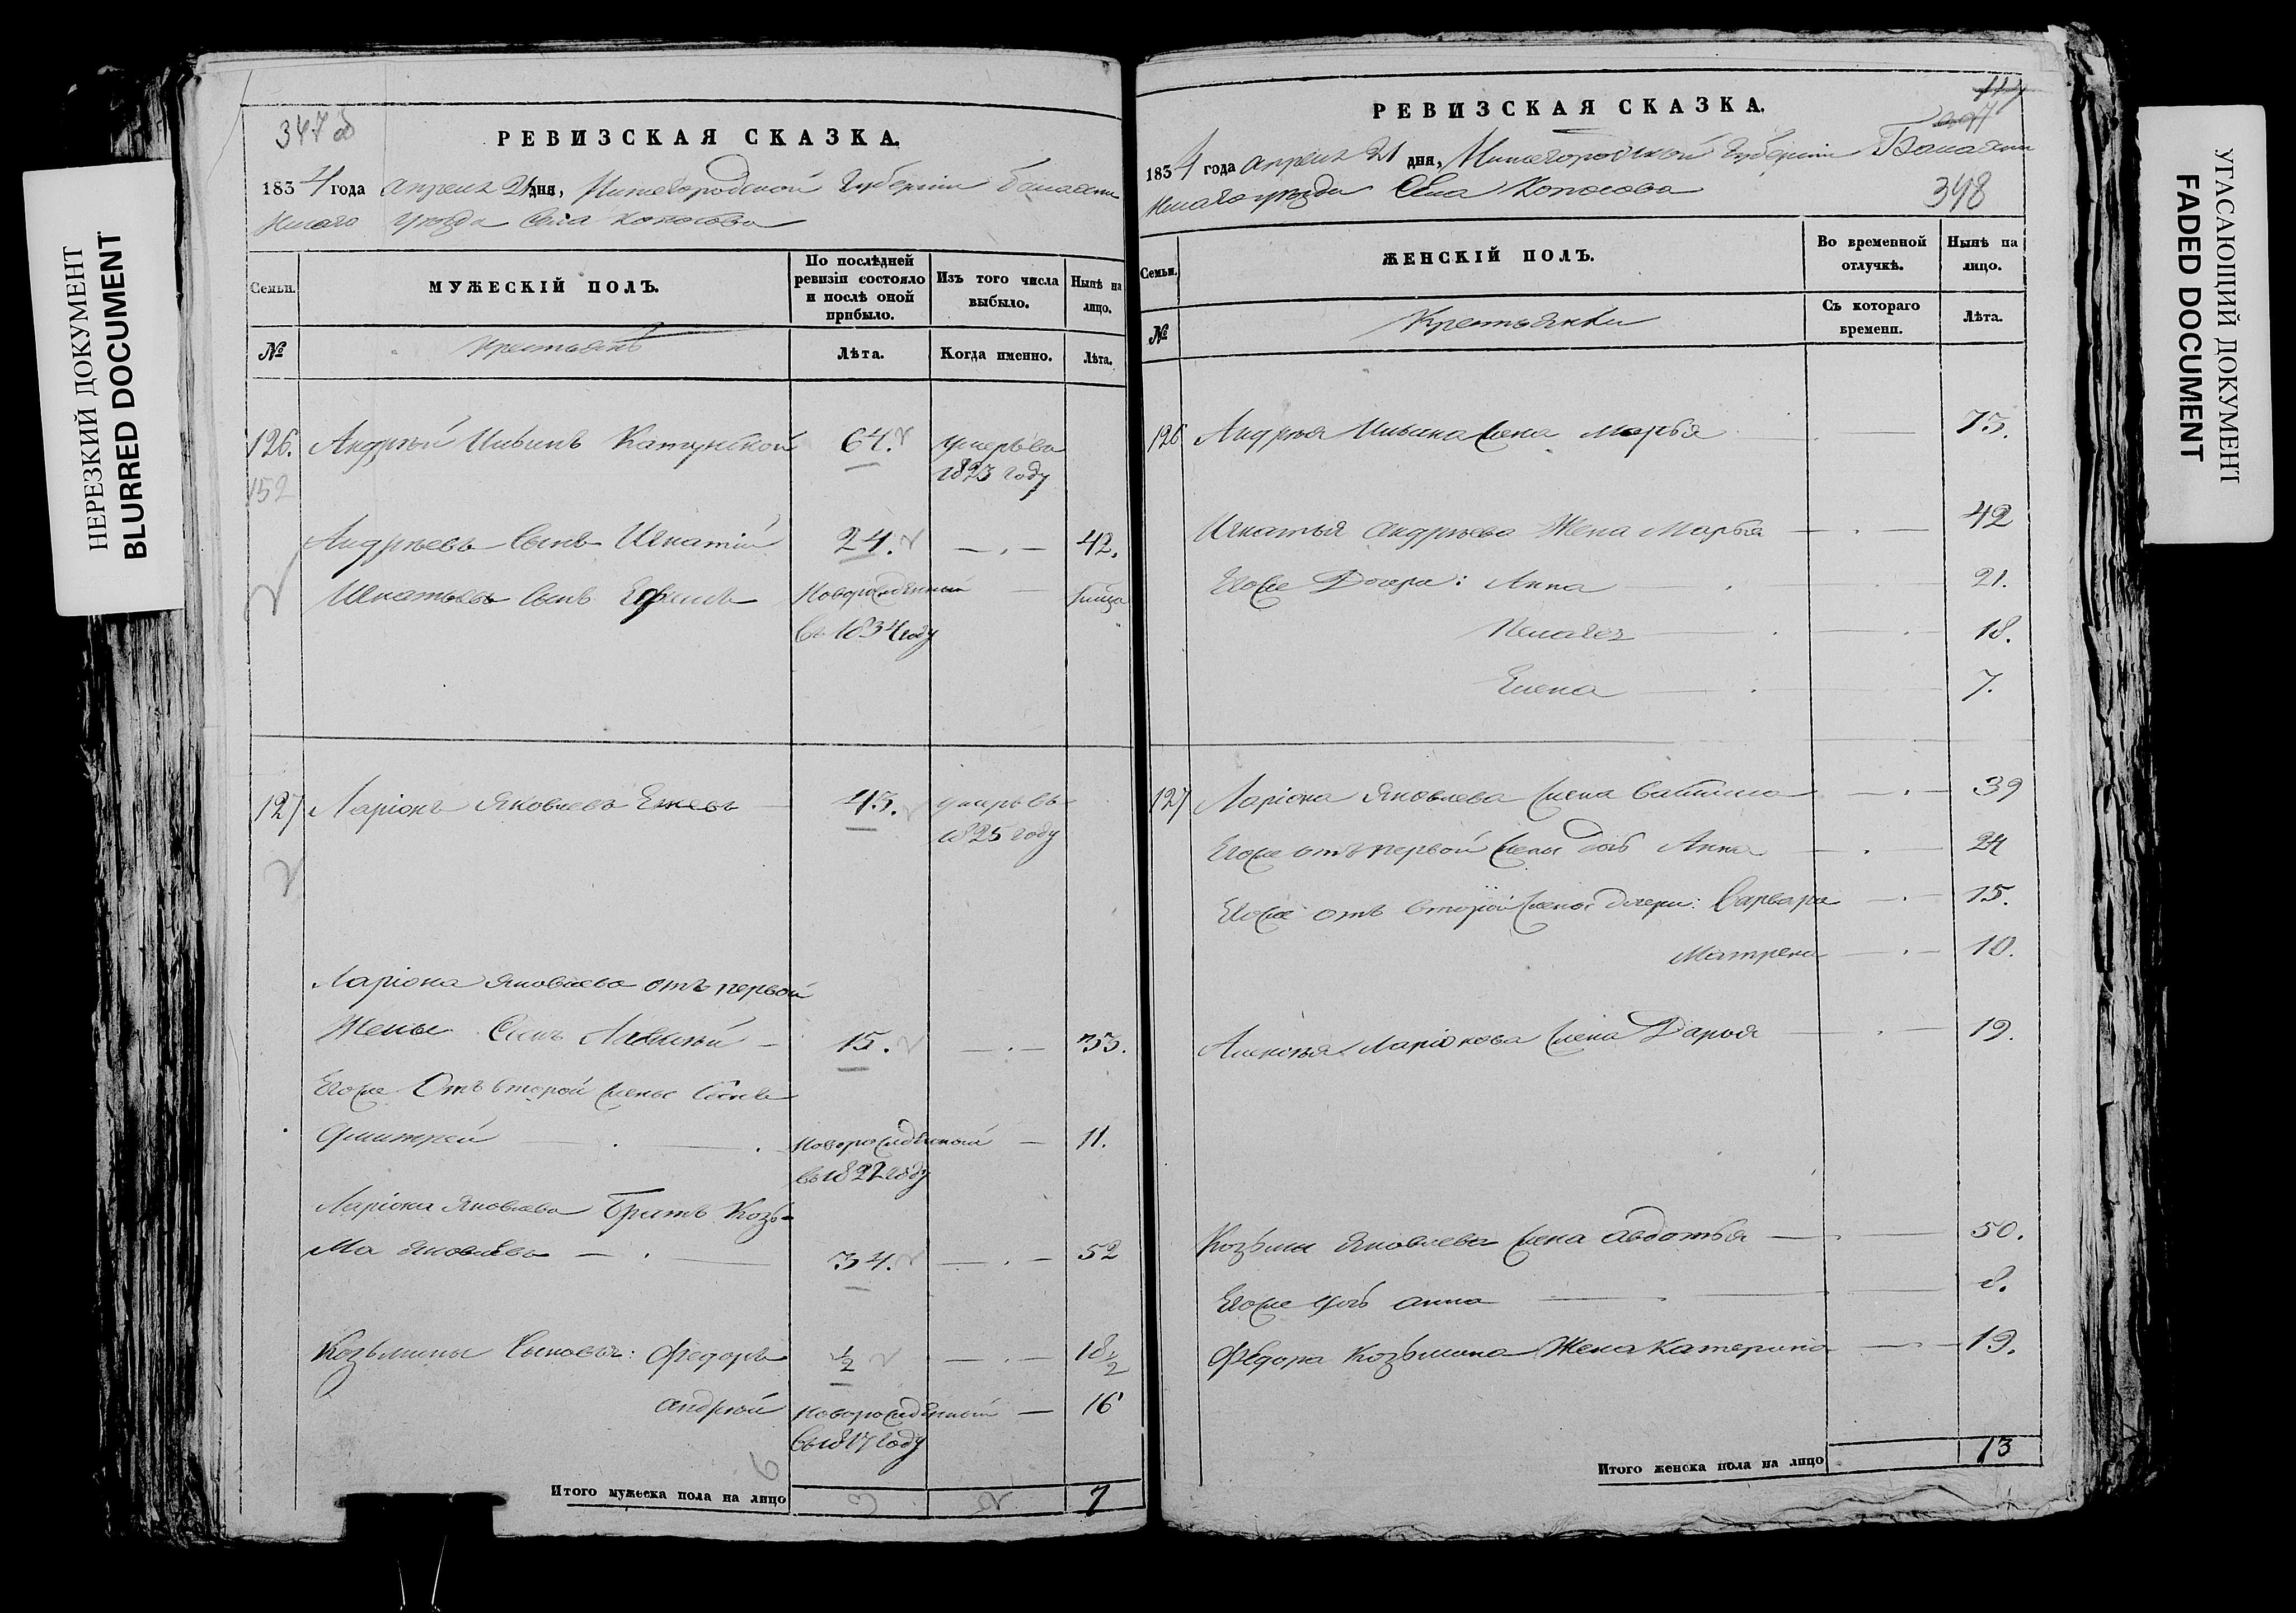 НЕРЕЗКИЙ ДОКУМЕНТ
BLURRED DOCUMENT
347 об
РЕВИЗСКАЯ СКАЗКА.
1834 года апреля 21 дня, Нижегородской Губернии Балахнин
скаго уезда Села Копосова
Семьи.
МУЖЕСКІЙ ПОЛЪ.
По послѣдней ревизіи состояло и послѣ оной прибыло.
Изъ того числа выбыло.
Нынѣ на лицо.
№
Крестьянъ
Лѣта.
Когда именно.
Лѣта.
126. Андрѣй Ивинъ Катунской 64. умеръ въ
152 1823 году
Андрѣевъ Сынъ Игнатій 24. 42.
Игнатьевъ Сынъ Новорожденный
въ 1834 году
127 Ларіонъ Яковлевъ 43. умеръ въ
1825 году
Ларіона Яковлева отъ первой
Жены Сынъ Алексѣй 15. 33.
Егоже Отъ второй жены Сынъ
Дмитрей новорожденный 11.
въ 1822 году
Ларіона Яковлева Братъ Козь-
ма Яковлевъ 34. 52
Козьмины Сыновья: Федоръ ½ 18½
андрѣй новорожденный 16
въ 1817 году
6
Итого мужеска пола на лицо 7
РЕВИЗСКАЯ СКАЗКА.
1834 года апреля 21 дня, Нижегородской Губерніи Балахнин
скаго уезда Села Копосова
348
Семьи.
ЖЕНСКІЙ ПОЛЪ.
Во временной отлучкѣ.
Нынѣ на лицо.
№
Крестьянки
Съ котораго времени.
Лѣта.
126 Андрея Ивина жена Марья 73.
Игнатья андрѣева Жена Марья 42
Егоже Дочери: Анна 21.
Пелагея 18.
Елена 7.
127 Ларіона Яковлева жена 39
Егоже отъ первой жены дочь Анна 24
Егоже отъ второй жены дочери: Варвара 15.
Матрена 10.
Алексѣя Ларіонова жена Дарья 19.
Козьмы Яковлева жена авдотья 50.
Егоже дочь анна 8.
Федора Козьмина Жена Катерина 19.
Итого женска пола на лицо 13
УГАСАЮЩИЙ ДОКУМЕНТ
FADED DOCUMENT